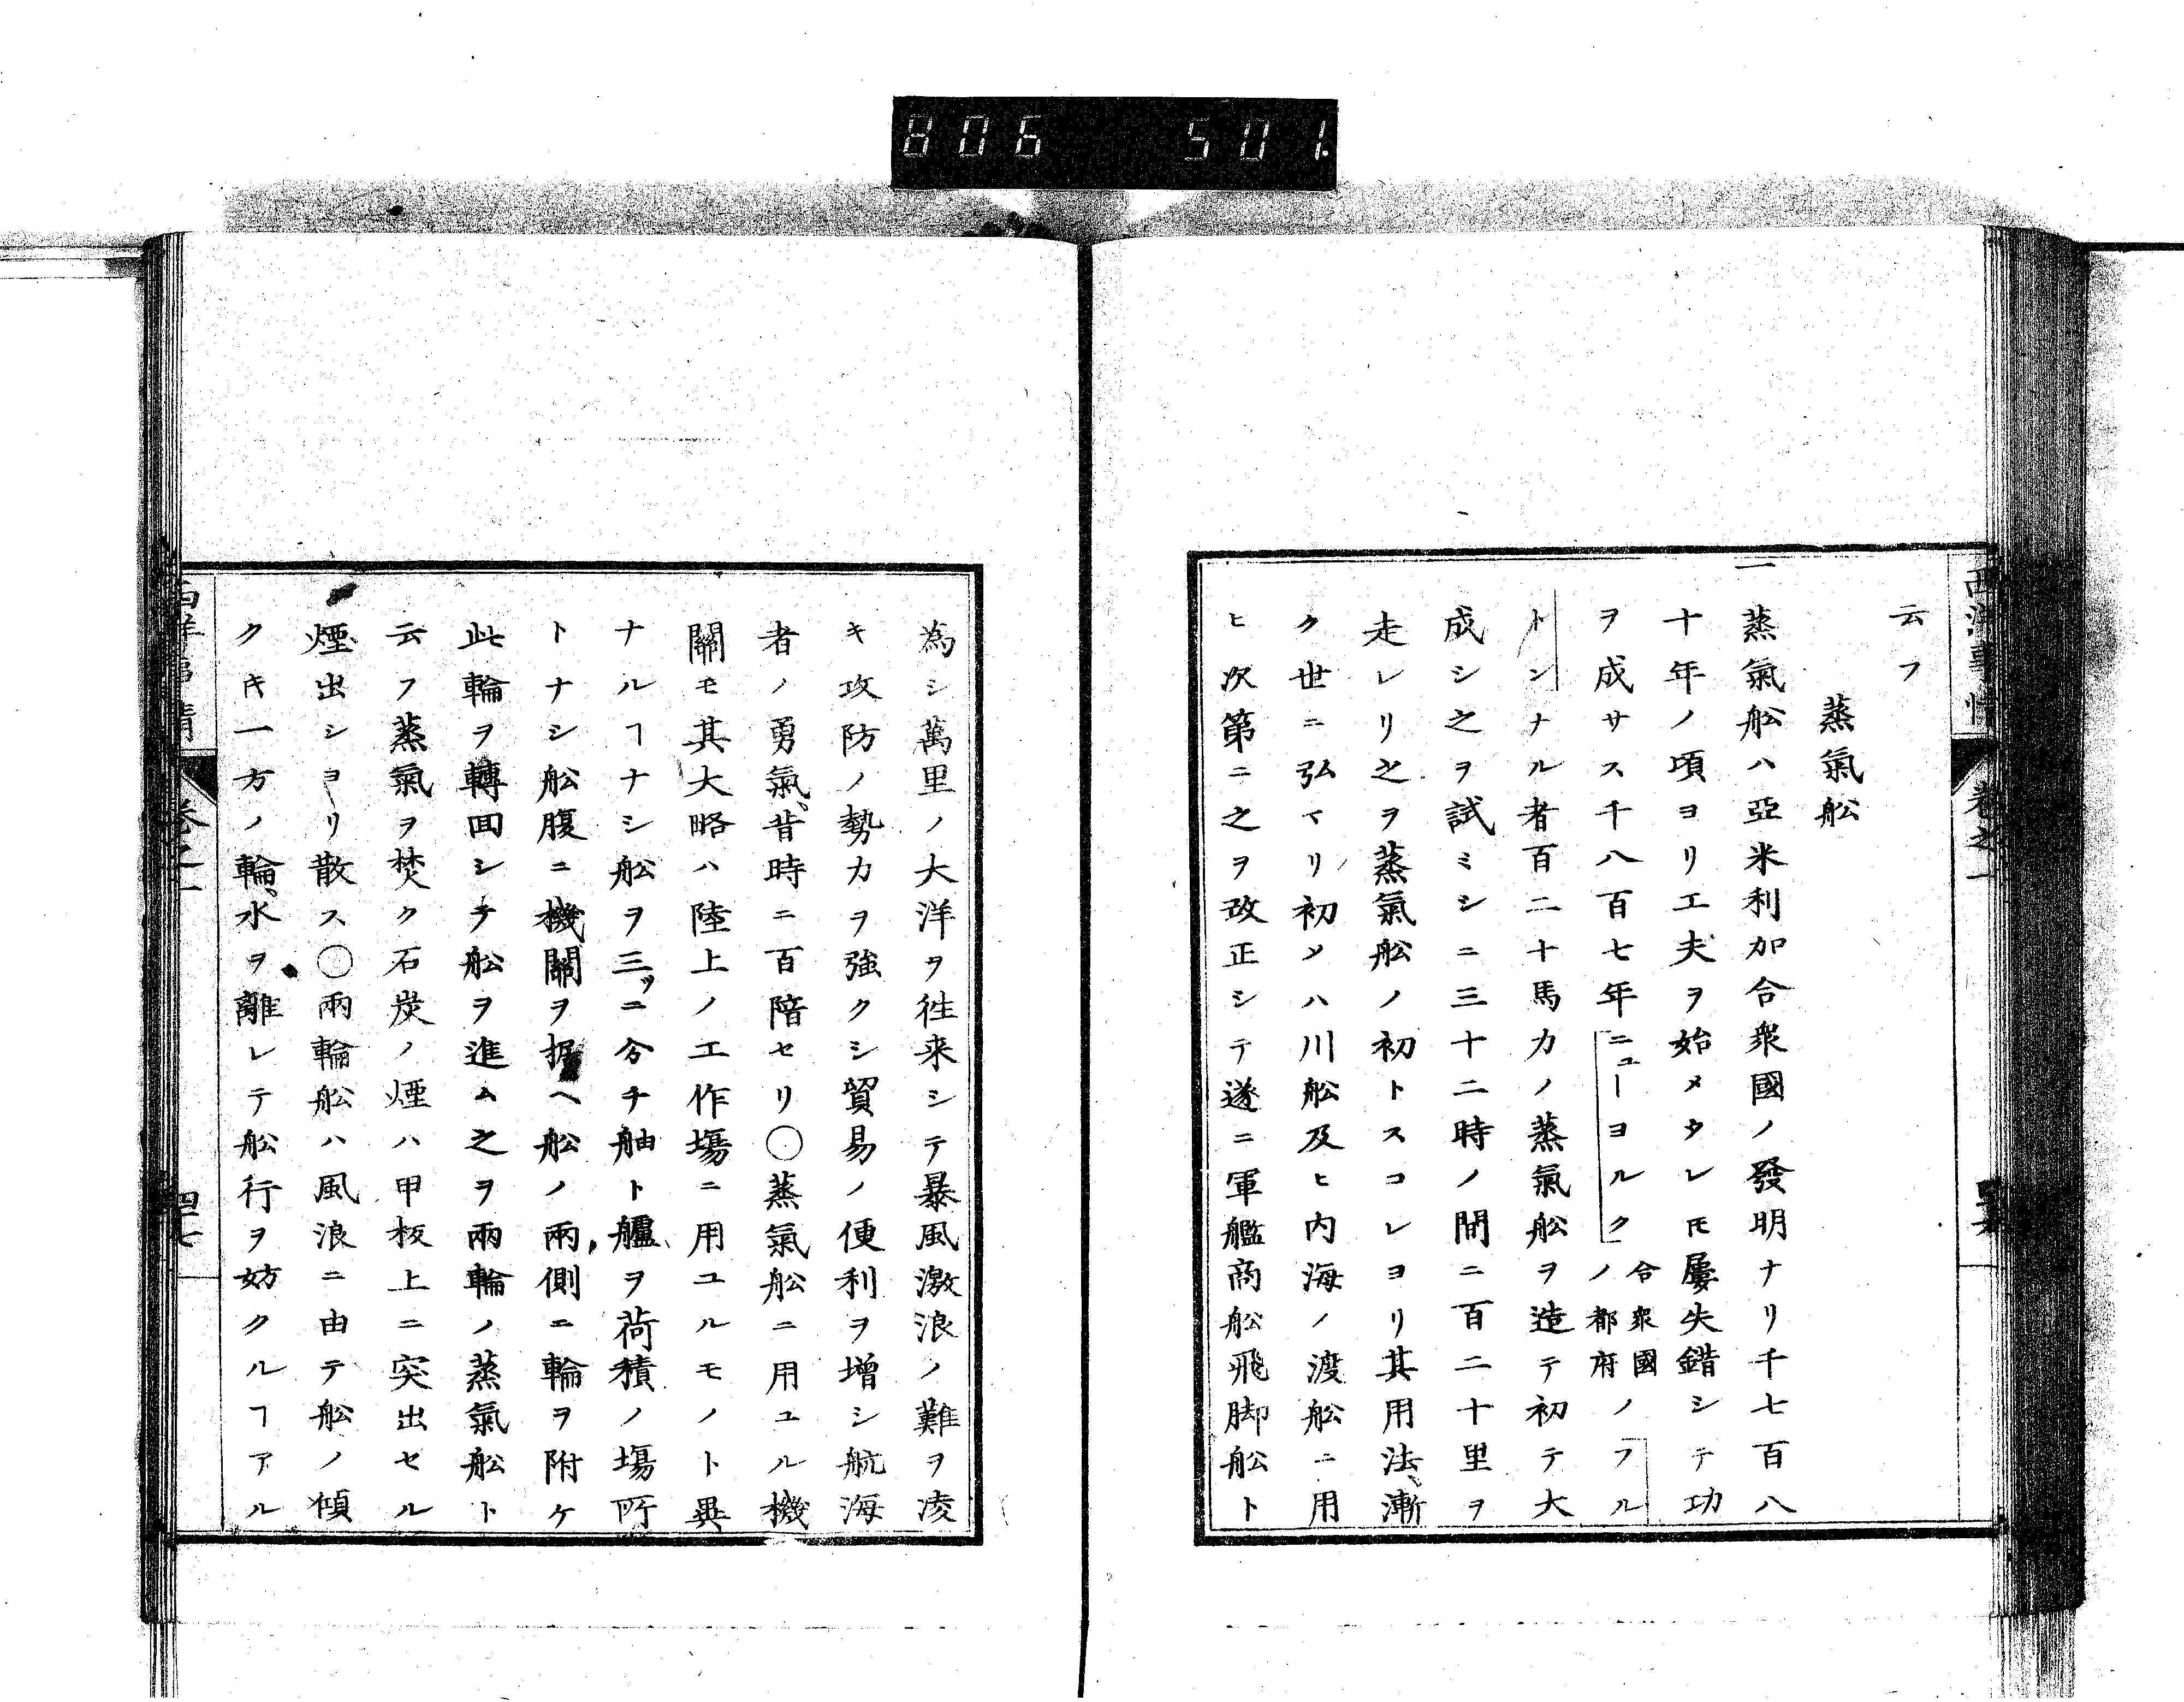 806 501.
西洋事情 巻之一
云フ
蒸氣舩
一蒸氣舩ハ亞米利加合衆國ノ發明ナリ千七百八
十年ノ頃ヨリ工夫ヲ始メタレㇳモ屢失錯シテ功
ヲ成サス千八百七年ニューヨルク合衆國ノ都府ノフル
トンナル者百二十馬力ノ蒸氣舩ヲ造テ初テ大
成シ之ヲ試ミシニ三十二時ノ間ニ百二十里ヲ
走レリ之ヲ蒸氣舩ノ初トスコレヨリ其用法、漸
ク世ニ弘マリ初メハ川舩及ヒ内海ノ渡舩ニ用
ヒ次第ニ之ヲ改正シテ遂ニ軍艦商舩飛脚舩ト
為シ萬里ノ大洋ヲ徃来シテ暴風激浪ノ難ヲ凌
キ攻防ノ勢力ヲ強クシ貿易ノ便利ヲ增シ航海
者ノ勇氣、昔時ニ百陪セリ〇蒸氣舩ニ用ユル機
關モ其大略ハ陸上ノ工作塲ニ用ユルモノト異
ナルヿナシ舩ヲ三ッニ分チ舳ト艫、ヲ荷積ノ塲所
トナシ舩腹ニ機關ヲ据ヘ舩ノ兩側ニ輪ヲ附ケ
此輪ヲ轉囬シテ舩ヲ進ム之ヲ兩輪ノ蒸氣舩ト
云フ蒸氣ヲ焚ク石炭ノ煙ハ甲板上ニ突出セル
煙出シヨリ散ス〇兩輪舩ハ風浪ニ由テ舩ノ傾
クキ一方ノ輪、水ヲ離レテ舩行ヲ妨クルヿアル
西洋事情 巻之一 四十七